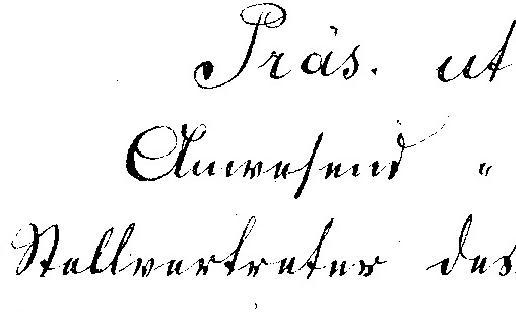 Präs. ut
Anwesend "
Stellvertreter des